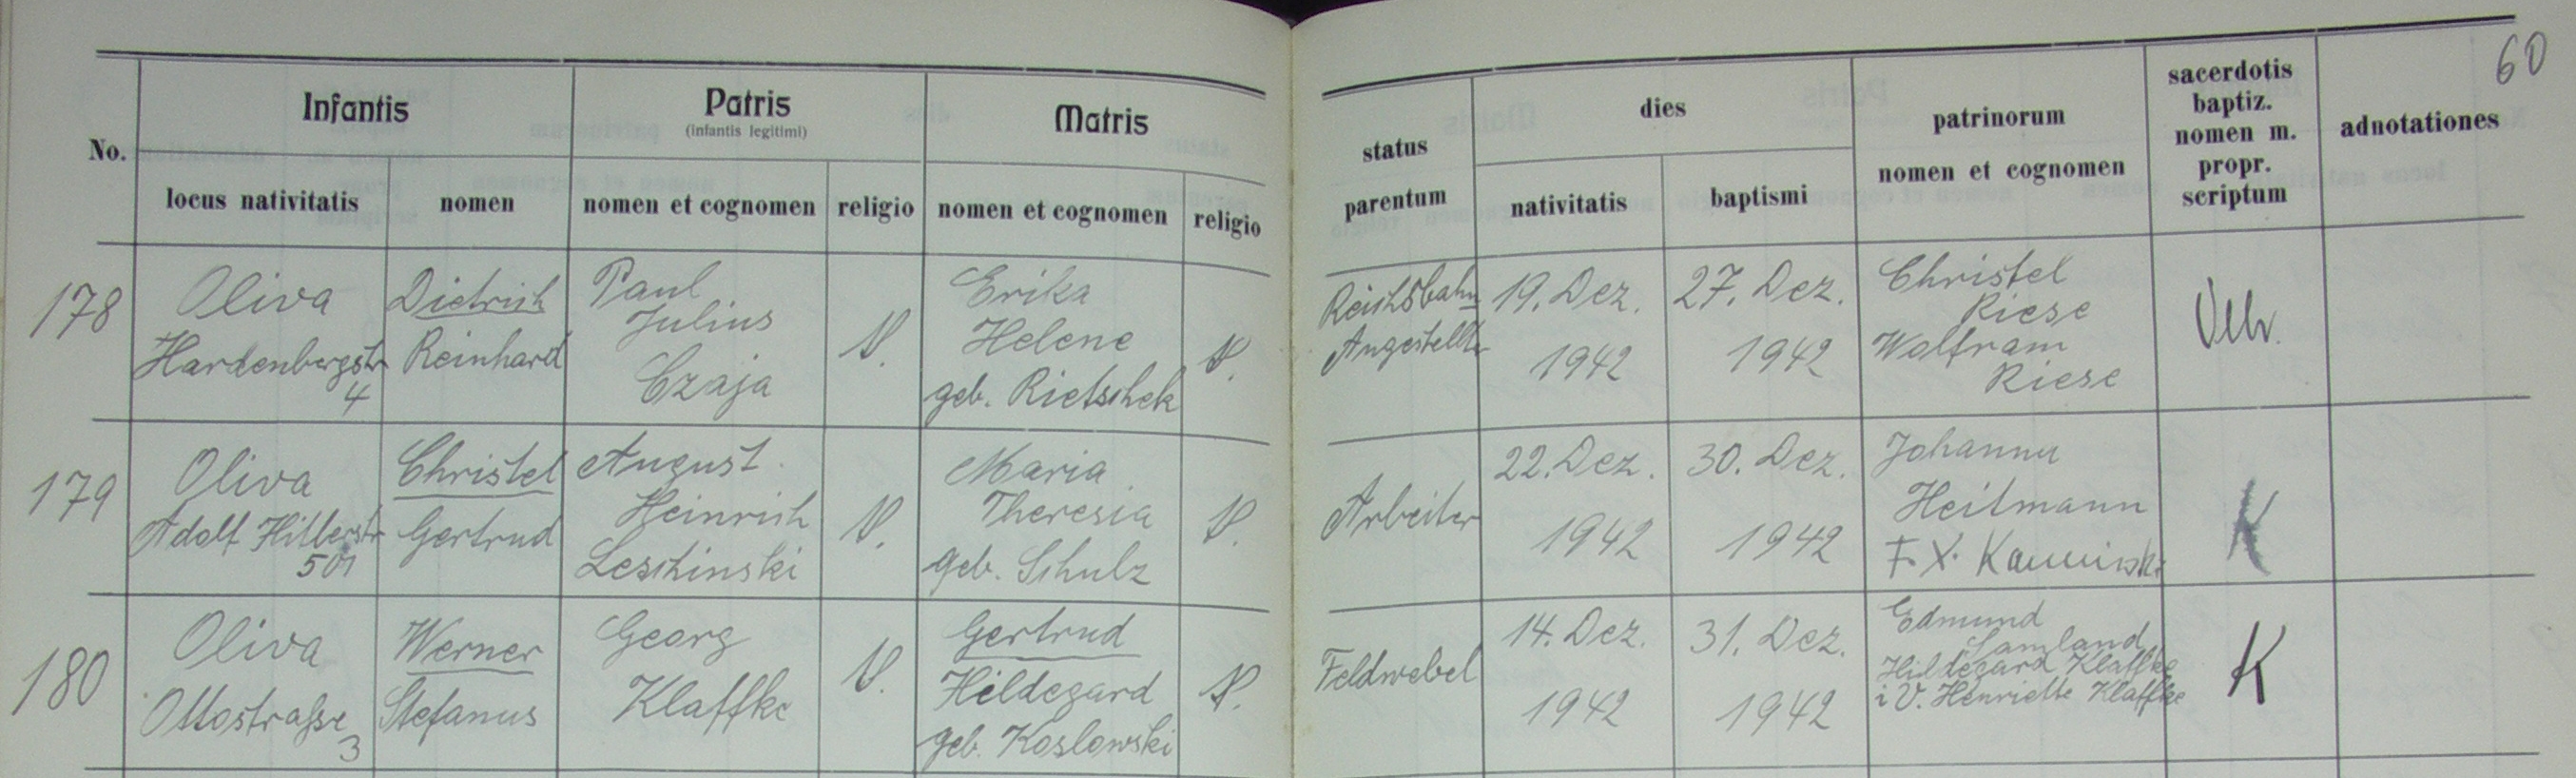 60
No.
Infantis
Patris
(infantis legitimi)
Matris
status parentum
dies
patrinorum
nomen et cognomen
sacerdotis
baptiz.
nomen m.
propr.
scriptum
adnotationes
locus nativitatis
nomen
nomen et cognomen
religio
nomen et cognomen
religio
nativitatis
baptismi
178
Oliva
Hardenbergstr
4
Dietrich
Reinhard
Paul
Julius
Czaja
Erika
Helene
geb. Rietschek
Reichsbahn
Angestellter
19. Dez.
1942
27. Dez.
1942
Christel
Riese
Wolfram
Riese
179
Oliva
Adolf Hitlerstr
501
Christel
Gertrud
August
Heinrich
Leschinski
Maria
Theresia
geb. Schulz
Arbeiter
22. Dez.
1942
30. Dez.
1942
Johanna
Heitmann
F. X. Kaminski
K
180
Oliva
Ottostraße
3
Werner
Stefanus
Georg
Klaffke
Gertrud
Hildegard
geb. Koslowski
Feldwebel
14. Dez.
1942
31. Dez.
1942
Edmund
Samland
Hildegard Klaffke
i V. Henriette Klaffke
K